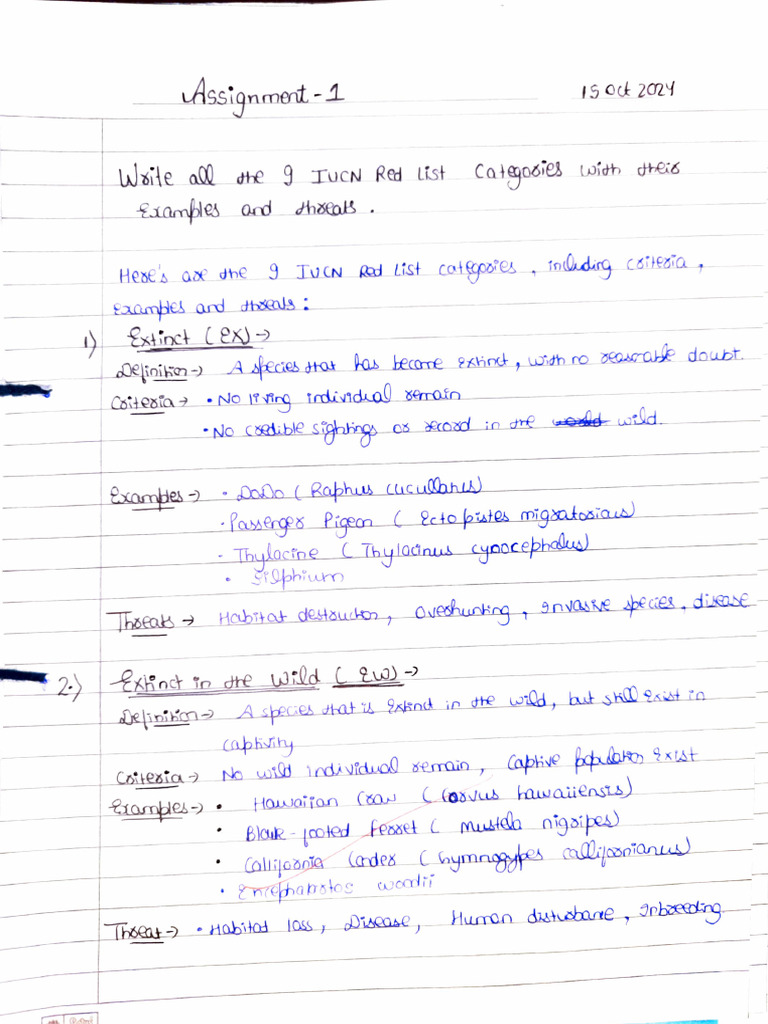 Assignment-1
15 Oct 2024
Write all the 9 IUCN Red List Categories with their
Examples and threats.
Here's are the 9 IUCN Red List categories, including criteria,
Examples and threats:
1) Extinct (EX)→
Definition→ A species that has become extinct, with no reasonable doubt.
Criteria→ • No living individual remain
• No credible sightings or record in the world wild.
Examples→ • DoDo (Raphus cucullanus)
• Passenger Pigeon (Ectopistes migratoriaus)
• Thylacine (Thylacinus cynocephalus)
• Silphium
Threats→ Habitat destructon, Overhunting, Invasive species, disease
2.) Extinct in the Wild (EW)→
Definition→ A species that is Extinct in the wild, but still Exist in
captivity
Criteria→ No wild individual remain, Captive population Exist
Examples→ • Hawaiian Craw (Corvus hawaiiensis)
• Black-footed Ferret (Mustela nigripes)
• Callifornia Conder (Gymnogypes callifornianus)
• Encephalartos woodii
Threat→ • Habitat loss, Disease, Human disturbance, Inbreeding